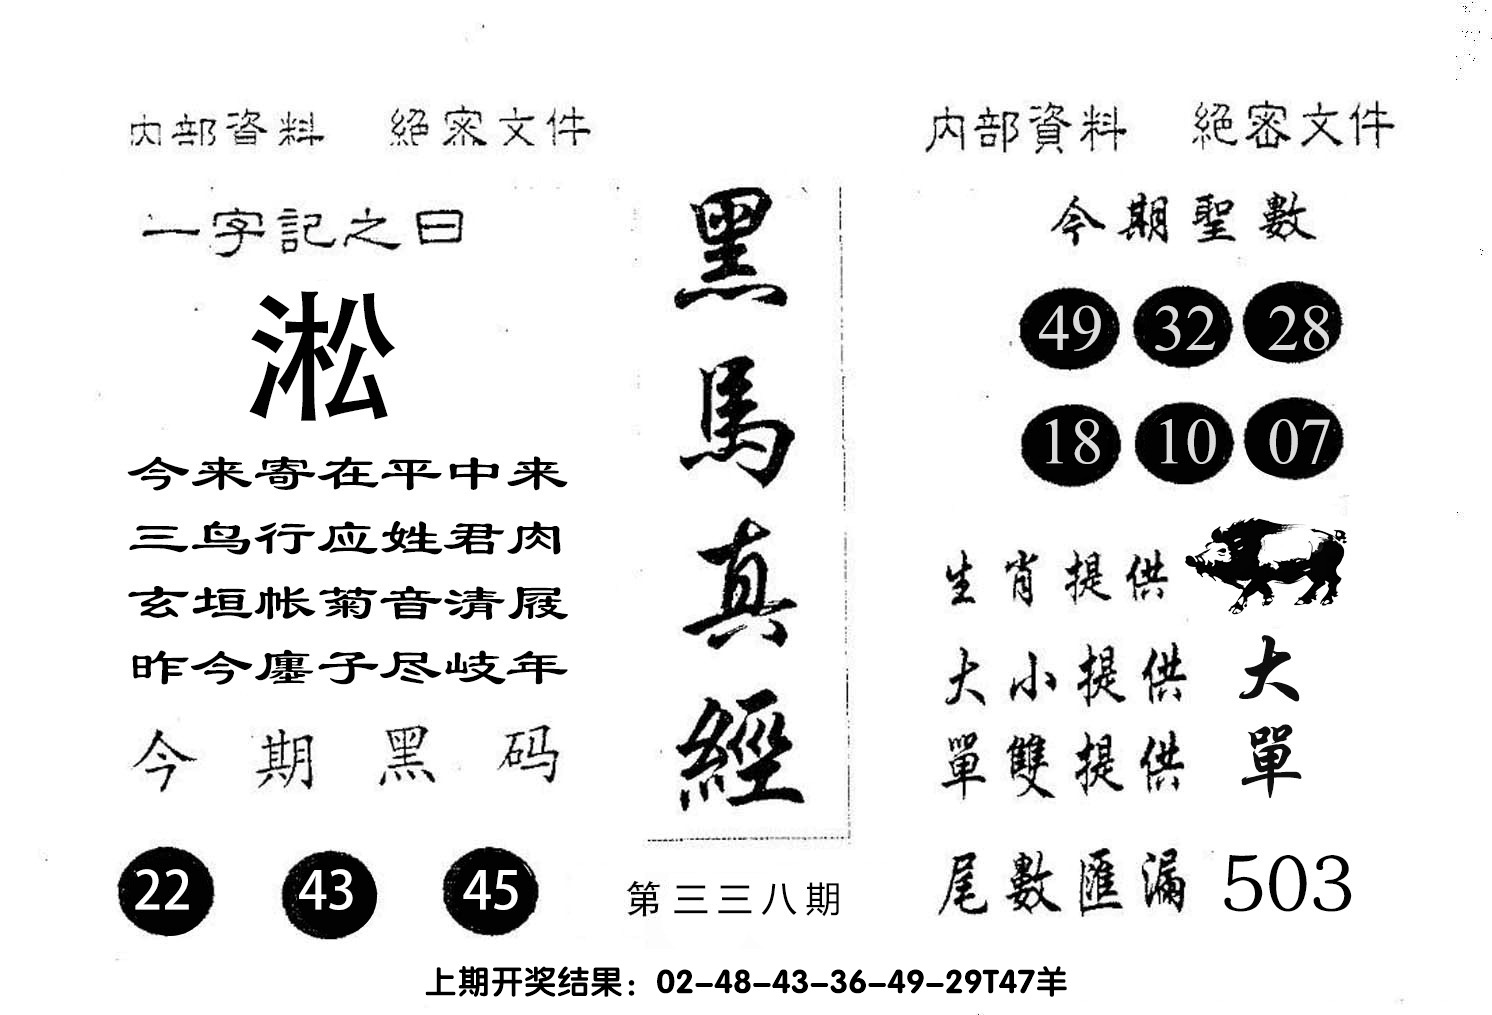 内部資料 絕密文件
一字記之曰
淞
今来寄在平中来
三鸟行应姓君肉
玄垣帐菊音清屐
昨今廛子尽岐年
今期黑码
22 43 45
黑馬真經
第三三八期
内部資料 絕密文件
今期聖數
49 32 28
18 10 07
生肖提供
大小提供 大
單雙提供 單
尾數匯漏 503
上期开奖结果：02-48-43-36-49-29T47羊